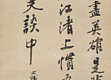 盡英雄是
江渚上慣
笑談中